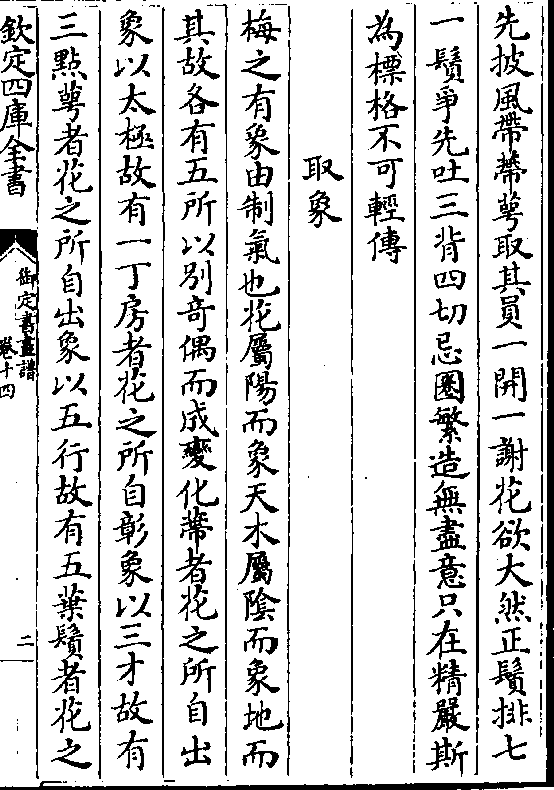 先披風帶蔕萼取其員一開一謝花欲大然正鬚排七
一鬚爭先吐三背四切忌圈繁造無盡意只在精嚴斯
為標格不可輕傳
取象
梅之有象由制氣也花屬陽而象天木屬陰而象地而
其故各有五所以別竒偶而成變化蔕者花之所自出
象以太極故有一丁房者花之所自彰象以三才故有
三點萼者花之所自出象以五行故有五葉鬚者花之
欽定四庫全書
御定書畫譜
卷十四
二